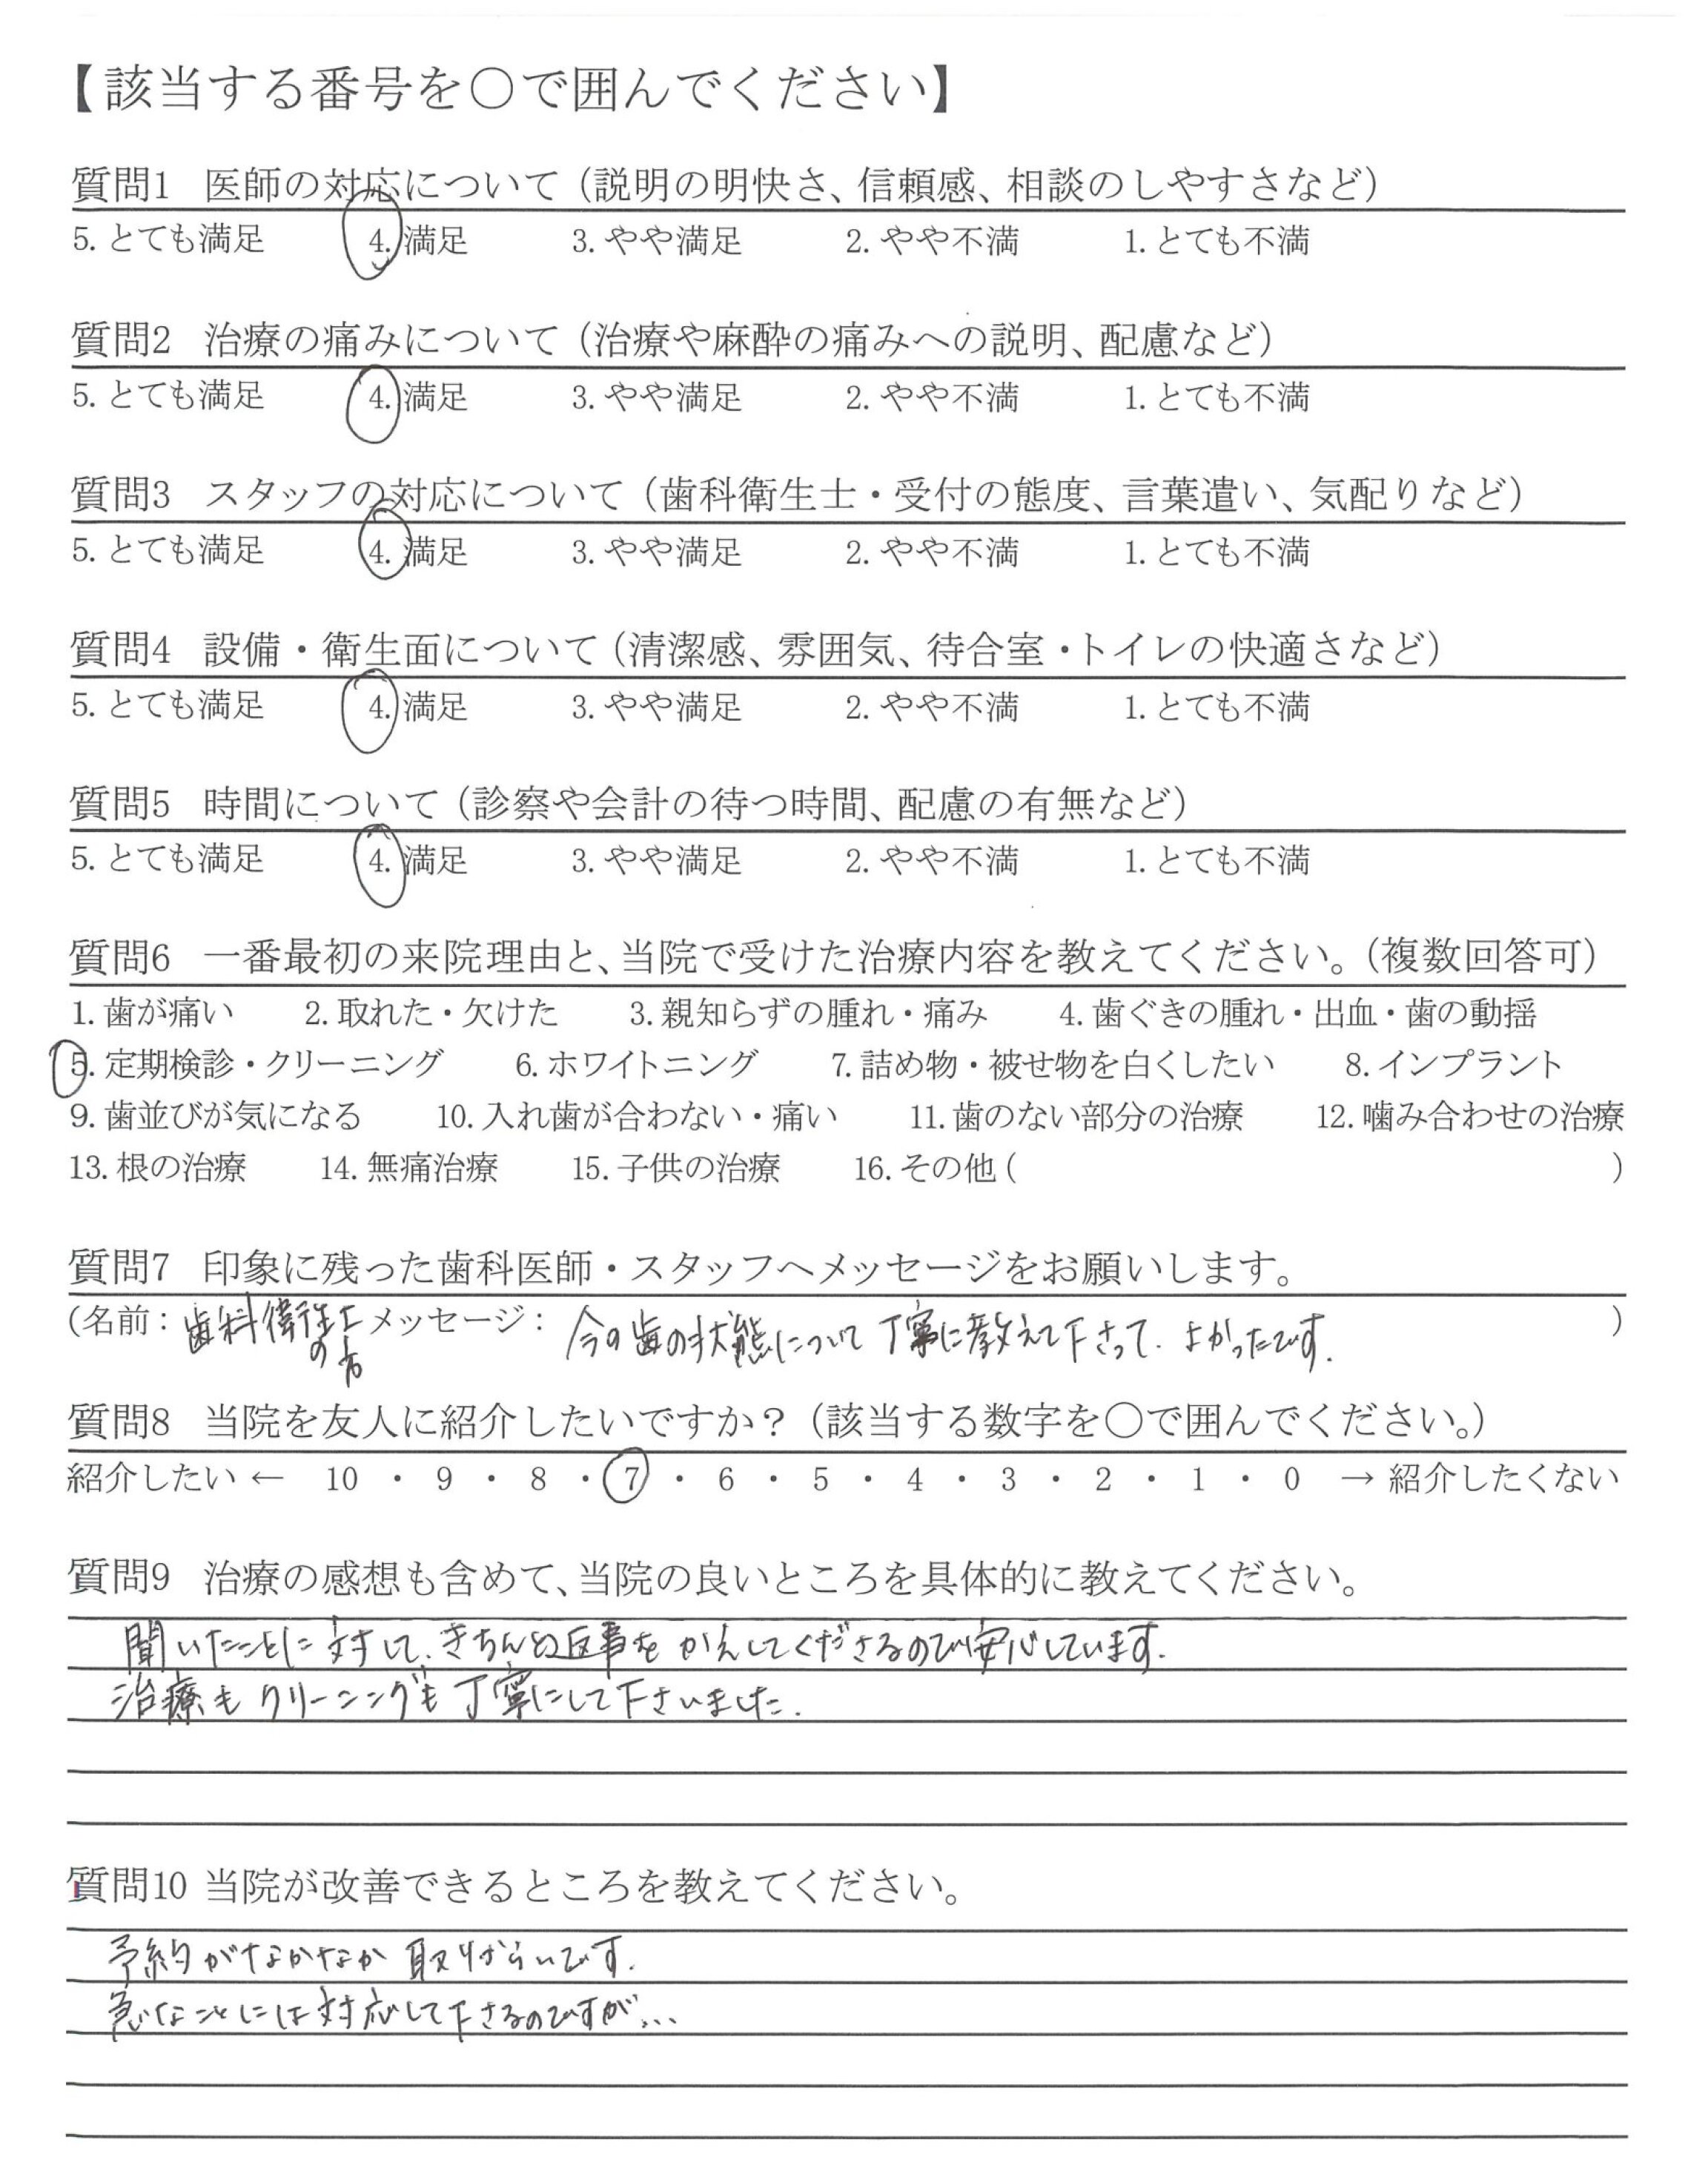 【該当する番号を○で囲んでください】
質問1 医師の対応について（説明の明快さ、信頼感、相談のしやすさなど）
5. とても満足 4. 満足 3. やや満足 2. やや不満 1. とても不満
質問2 治療の痛みについて（治療や麻酔の痛みへの説明、配慮など）
5. とても満足 4. 満足 3. やや満足 2. やや不満 1. とても不満
質問3 スタッフの対応について（歯科衛生士・受付の態度、言葉遣い、気配りなど）
5. とても満足 4. 満足 3. やや満足 2. やや不満 1. とても不満
質問4 設備・衛生面について（清潔感、雰囲気、待合室・トイレの快適さなど）
5. とても満足 4. 満足 3. やや満足 2. やや不満 1. とても不満
質問5 時間について（診察や会計の待つ時間、配慮の有無など）
5. とても満足 4. 満足 3. やや満足 2. やや不満 1. とても不満
質問6 一番最初の来院理由と、当院で受けた治療内容を教えてください。（複数回答可）
1. 歯が痛い 2. 取れた・欠けた 3. 親知らずの腫れ・痛み 4. 歯ぐきの腫れ・出血・歯の動揺
5. 定期検診・クリーニング 6. ホワイトニング 7. 詰め物・被せ物を白くしたい 8. インプラント
9. 歯並びが気になる 10. 入れ歯が合わない・痛い 11. 歯のない部分の治療 12. 噛み合わせの治療
13. 根の治療 14. 無痛治療 15. 子供の治療 16. その他（ ）
質問7 印象に残った歯科医師・スタッフへメッセージをお願いします。
（名前：歯科衛生士の方 メッセージ：今の歯の状態について丁寧に教えて下さって、よかったです。）
質問8 当院を友人に紹介したいですか？（該当する数字を○で囲んでください。）
紹介したい ← 10 ・ 9 ・ 8 ・ 7 ・ 6 ・ 5 ・ 4 ・ 3 ・ 2 ・ 1 ・ 0 → 紹介したくない
質問9 治療の感想も含めて、当院の良いところを具体的に教えてください。
聞いたことに対して、きちんと返事をかえしてくださるので安心しています。
治療もクリーニングも丁寧にして下さいました。
質問10 当院が改善できるところを教えてください。
予約がなかなか取りずらいです。
急なことには対応して下さるのですが…